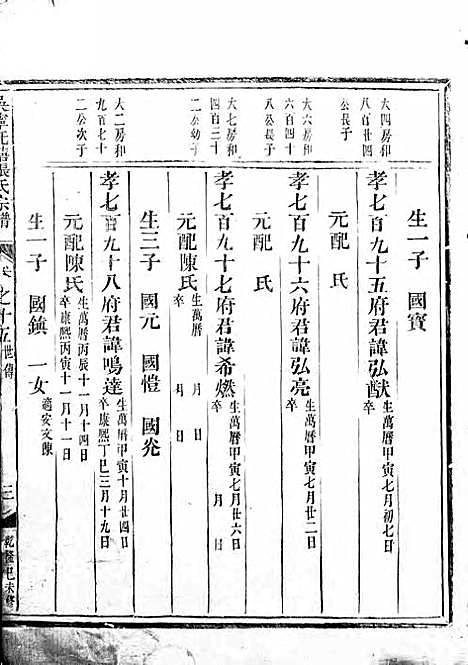 生一子 國賓
大四房和
八百廿四
公長子
孝七百九十五府君諱弘猷 生萬曆甲寅七月初七日
卒
元配 氏
大六房和
六百四十
八公長子
孝七百九十六府君諱弘亮 生萬曆甲寅七月廿二日
卒
元配 氏
大七房和
四百三十
二公幼子
孝七百九十七府君諱希燃 生萬曆甲寅七月廿六日
卒 月 日
元配陳氏 生萬曆 月 日
卒 月 日
生三子 國元 國愷 國光
大二房和
九百七十
二公次子
孝七百九十八府君諱鳴達 生萬曆甲寅十月廿四日
卒康熙丁巳三月十九日
元配陳氏 生萬曆丙辰十一月十四日
卒康熙丙寅十一月十一日
生一子 國鎮 一女 適安文陳
吳寧託塘張氏宗譜
之十五世傳
三
乾隆己未修